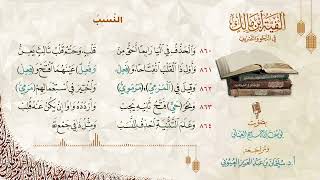 النَّسب
٨٦٠ وَالْحَذْفُ فِي الْيَا رَابِعًا أَحَقُّ مِنْ قَلْبٍ، وَحَتْمٌ قَلْبُ ثَالِثٍ يَعِنْ
٨٦١ وَأَوْلِ ذَا الْقَلْبِ انْفِتَاحًا، وَ(فَعِلْ) وَ(فُعِلٌ) عَيْنَهُمَا افْتَحْ وَ(فِعِلْ)
٨٦٢ وَقِيلَ فِي (الْمَرْمِيِّ): (مَرْمَوِيُّ) وَاخْتِيرَ فِي اسْتِعْمَالِهِمْ (مَرْمِيُّ)
٨٦٣ وَنَحْوُ (حَيٍّ) فَتْحُ ثَانِيهِ يَجِبْ وَارْدُدْهُ وَاوًا إِنْ يَكُنْ عَنْهُ قُلِبْ
٨٦٤ وَعَلَمَ التَّثْنِيَةِ احْذِفْ لِلنَّسَبْ وَمِثْلُ ذَا فِي
ألفية ابن مالك
في النحو والتصريف
بصوت
ومراجعة
أ.د. سليمان بن عبد العزيز العيوني